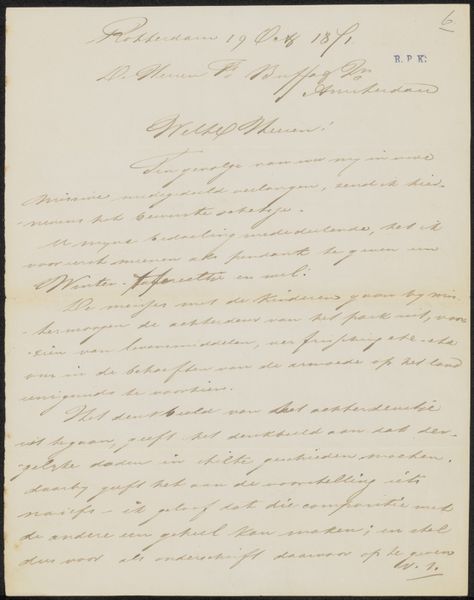 6
Rotterdam 19 Oct 1871
R.P.K.
De Heeren Fs Buffa & Zn
Amsterdam
WelEd Heeren!
Ten gevolge van uw my in uwe
missive medegedeeld verlangen, zend ik hier-
nevens het bewuste schetsje.
U myne bedoeling mededeelende, heb ik
voor als pendant te geven een
Winter- en wel:
De meisjes met de kinderen gaan by win-
ter de achterdeur van het park uit, voor-
zien van levensmiddelen, etc. etc.
om in de behoeften van de armoede op het land
eenigzinds te voorzien.
Het denkbeeld van het achterdeurtje
uit te gaan, geeft het denkbeeld aan dat der-
gelyke daden in stilte geschieden mochen.
daarby geeft het aan de voorstelling iets
naiefs - ik geloof dat die compositie met
de andere een geheel kan maken; en stel
dus voor als onderschrift daarvoor op te geven